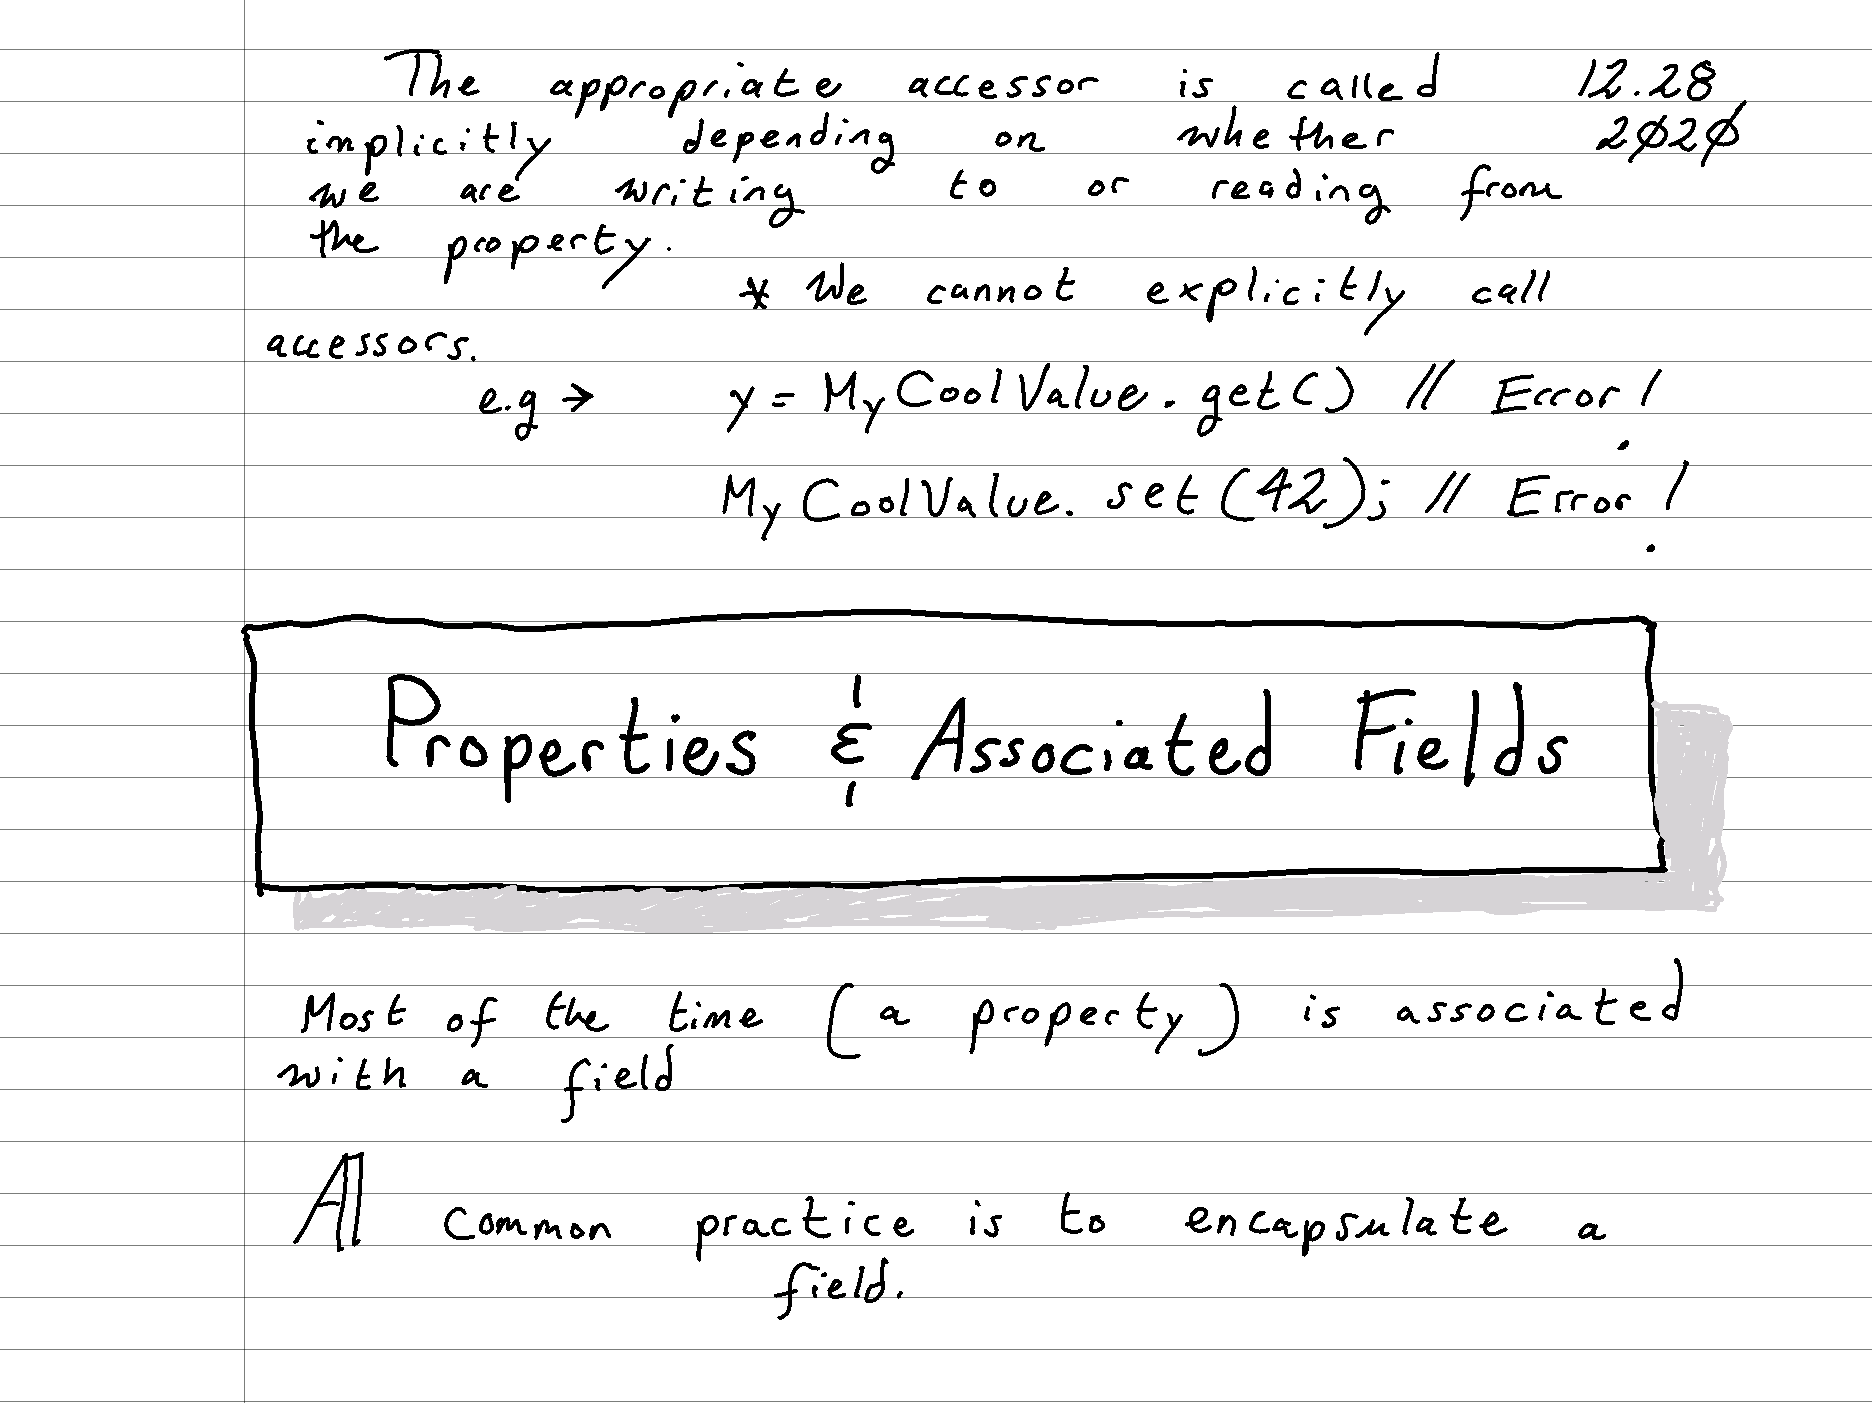 The appropriate accessor is called 12.28
implicitly depending on whether 2020
we are writing to or reading from
the property.
* We cannot explicitly call
accessors.
e.g → y = MyCoolValue.get() // Error!
MyCoolValue.set(42); // Error!
Properties & Associated Fields
Most of the time (a property) is associated
with a field
A common practice is to encapsulate a
field.